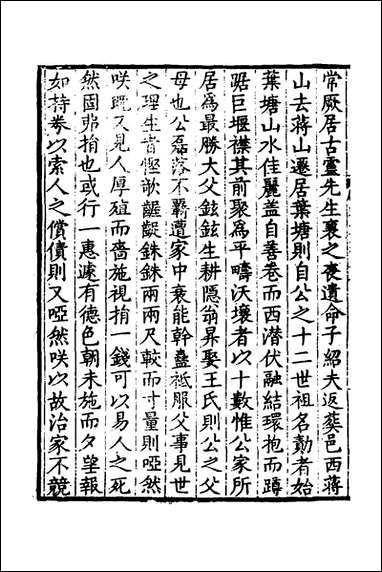 常厥居古靈先生襄之喪遺命子紹夫返葬邑西蔣
山去蔣山遷居葉塘則自公之十二世祖名勤者始
葉塘山水佳麗蓋自善卷而西潜伏融結環抱而蹲
踞巨堰襟其前聚為平疇沃壤者以十數惟公家所
居為最勝大父鉉鉉生耕隱翁昇娶王氏則公之父
母也公磊落不羈遭家中衰能幹蠱祗服父事見世
之理生者慳歉齷齪銖銖兩兩尺較而寸量則啞然
咲旣又見人厚殖而嗇施視捐一錢可以易人之死
然固弗捐也或行一惠遽有德色朝未施而夕望報
如持券以索人之償債則又啞然咲以故治家不競